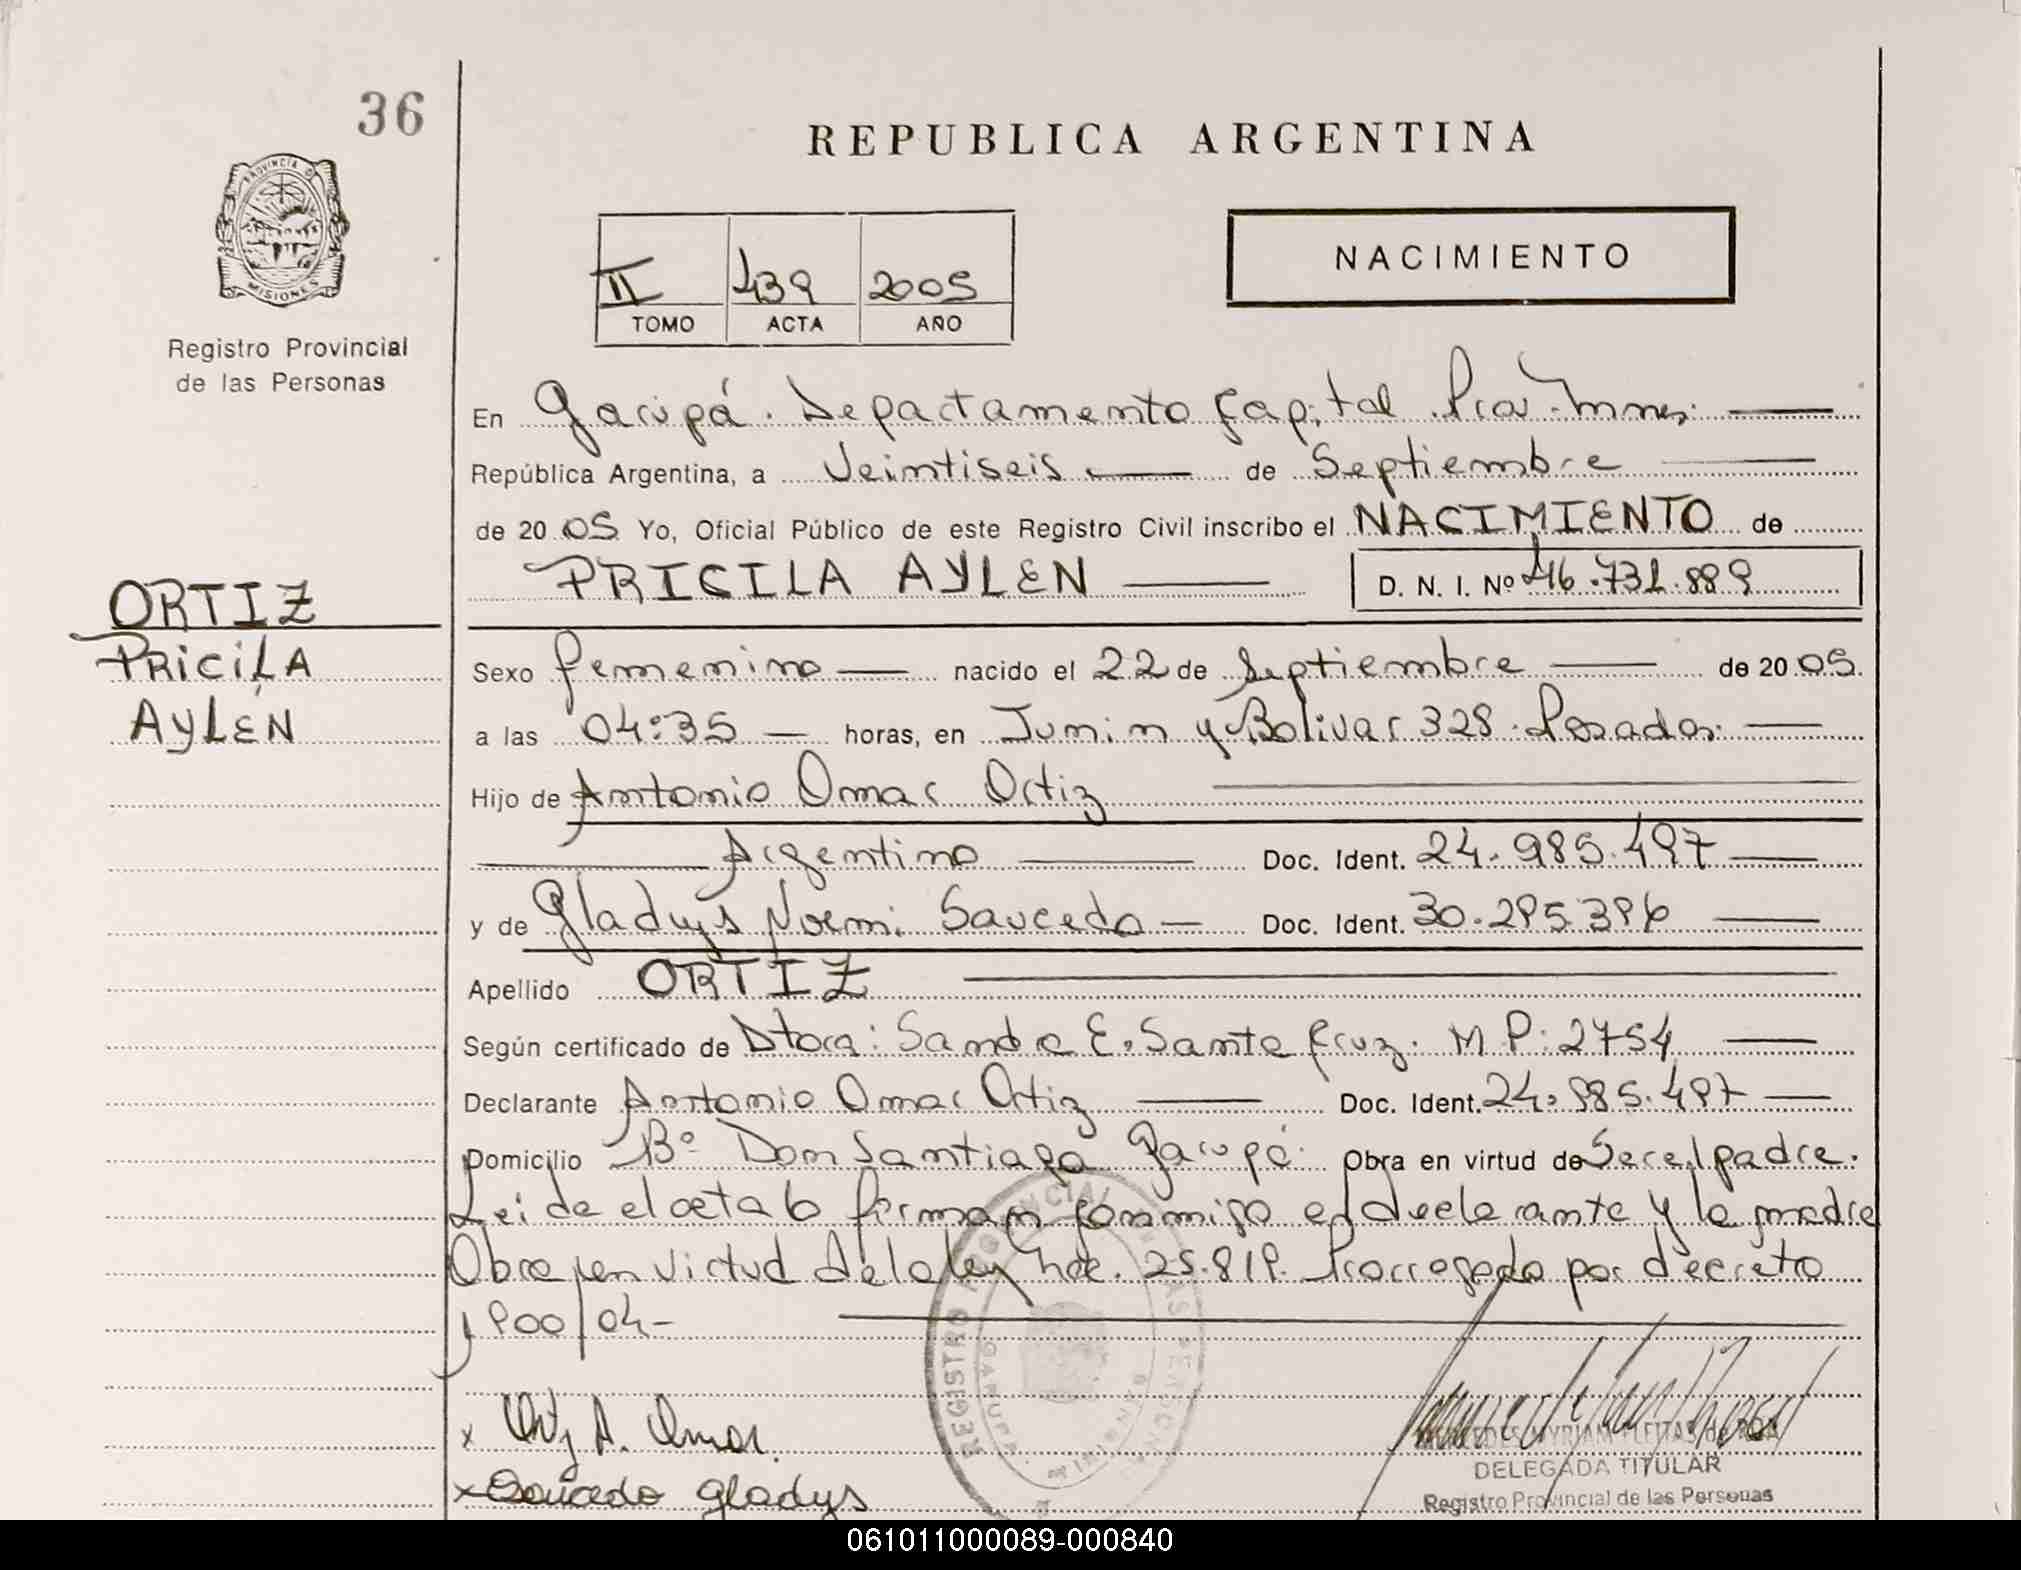 36
REPUBLICA ARGENTINA
PROVINCIA DE
MISIONES
Registro Provincial
de las Personas
NACIMIENTO
II 439 2005
TOMO ACTA AÑO
En Garupá. Departamento Capital Prov. Mnes.
República Argentina, a Veintiseis de Septiembre
de 2005 Yo, Oficial Público de este Registro Civil inscribo el NACIMIENTO de
PRICILA AYLEN D. N. I. Nº 46.731.889
ORTIZ
PRICILA
AYLEN
Sexo femenino nacido el 22 de Septiembre de 2005.
a las 04:35 horas, en Junin y Bolivar 328. Posadas.
Hijo de Antonio Omar Ortiz
Argentino Doc. Ident. 24.985.497
y de Gladys Noemi Saucedo Doc. Ident. 30.295396
Apellido ORTIZ
Según certificado de Dtora: Sandra E. Santa Cruz. M P: 2754
Declarante Antonio Omar Ortiz Doc. Ident. 24.985.497
Domicilio Bº Don Santiago Garupá. Obra en virtud de Ser el padre.
Leida el acta firman conmigo el declarante y la madre
Obra en virtud de la ley 25.819. Prorrogada por decreto
1900/04-
x Ortiz A. Omar.
x Saucedo Gladys
REGISTRO PROVINCIAL DE LAS PERSONAS
GARUPA
MISIONES
MERCEDES MYRIAM FLEITAS de RON
DELEGADA TITULAR
Registro Provincial de las Personas
061011000089-000840